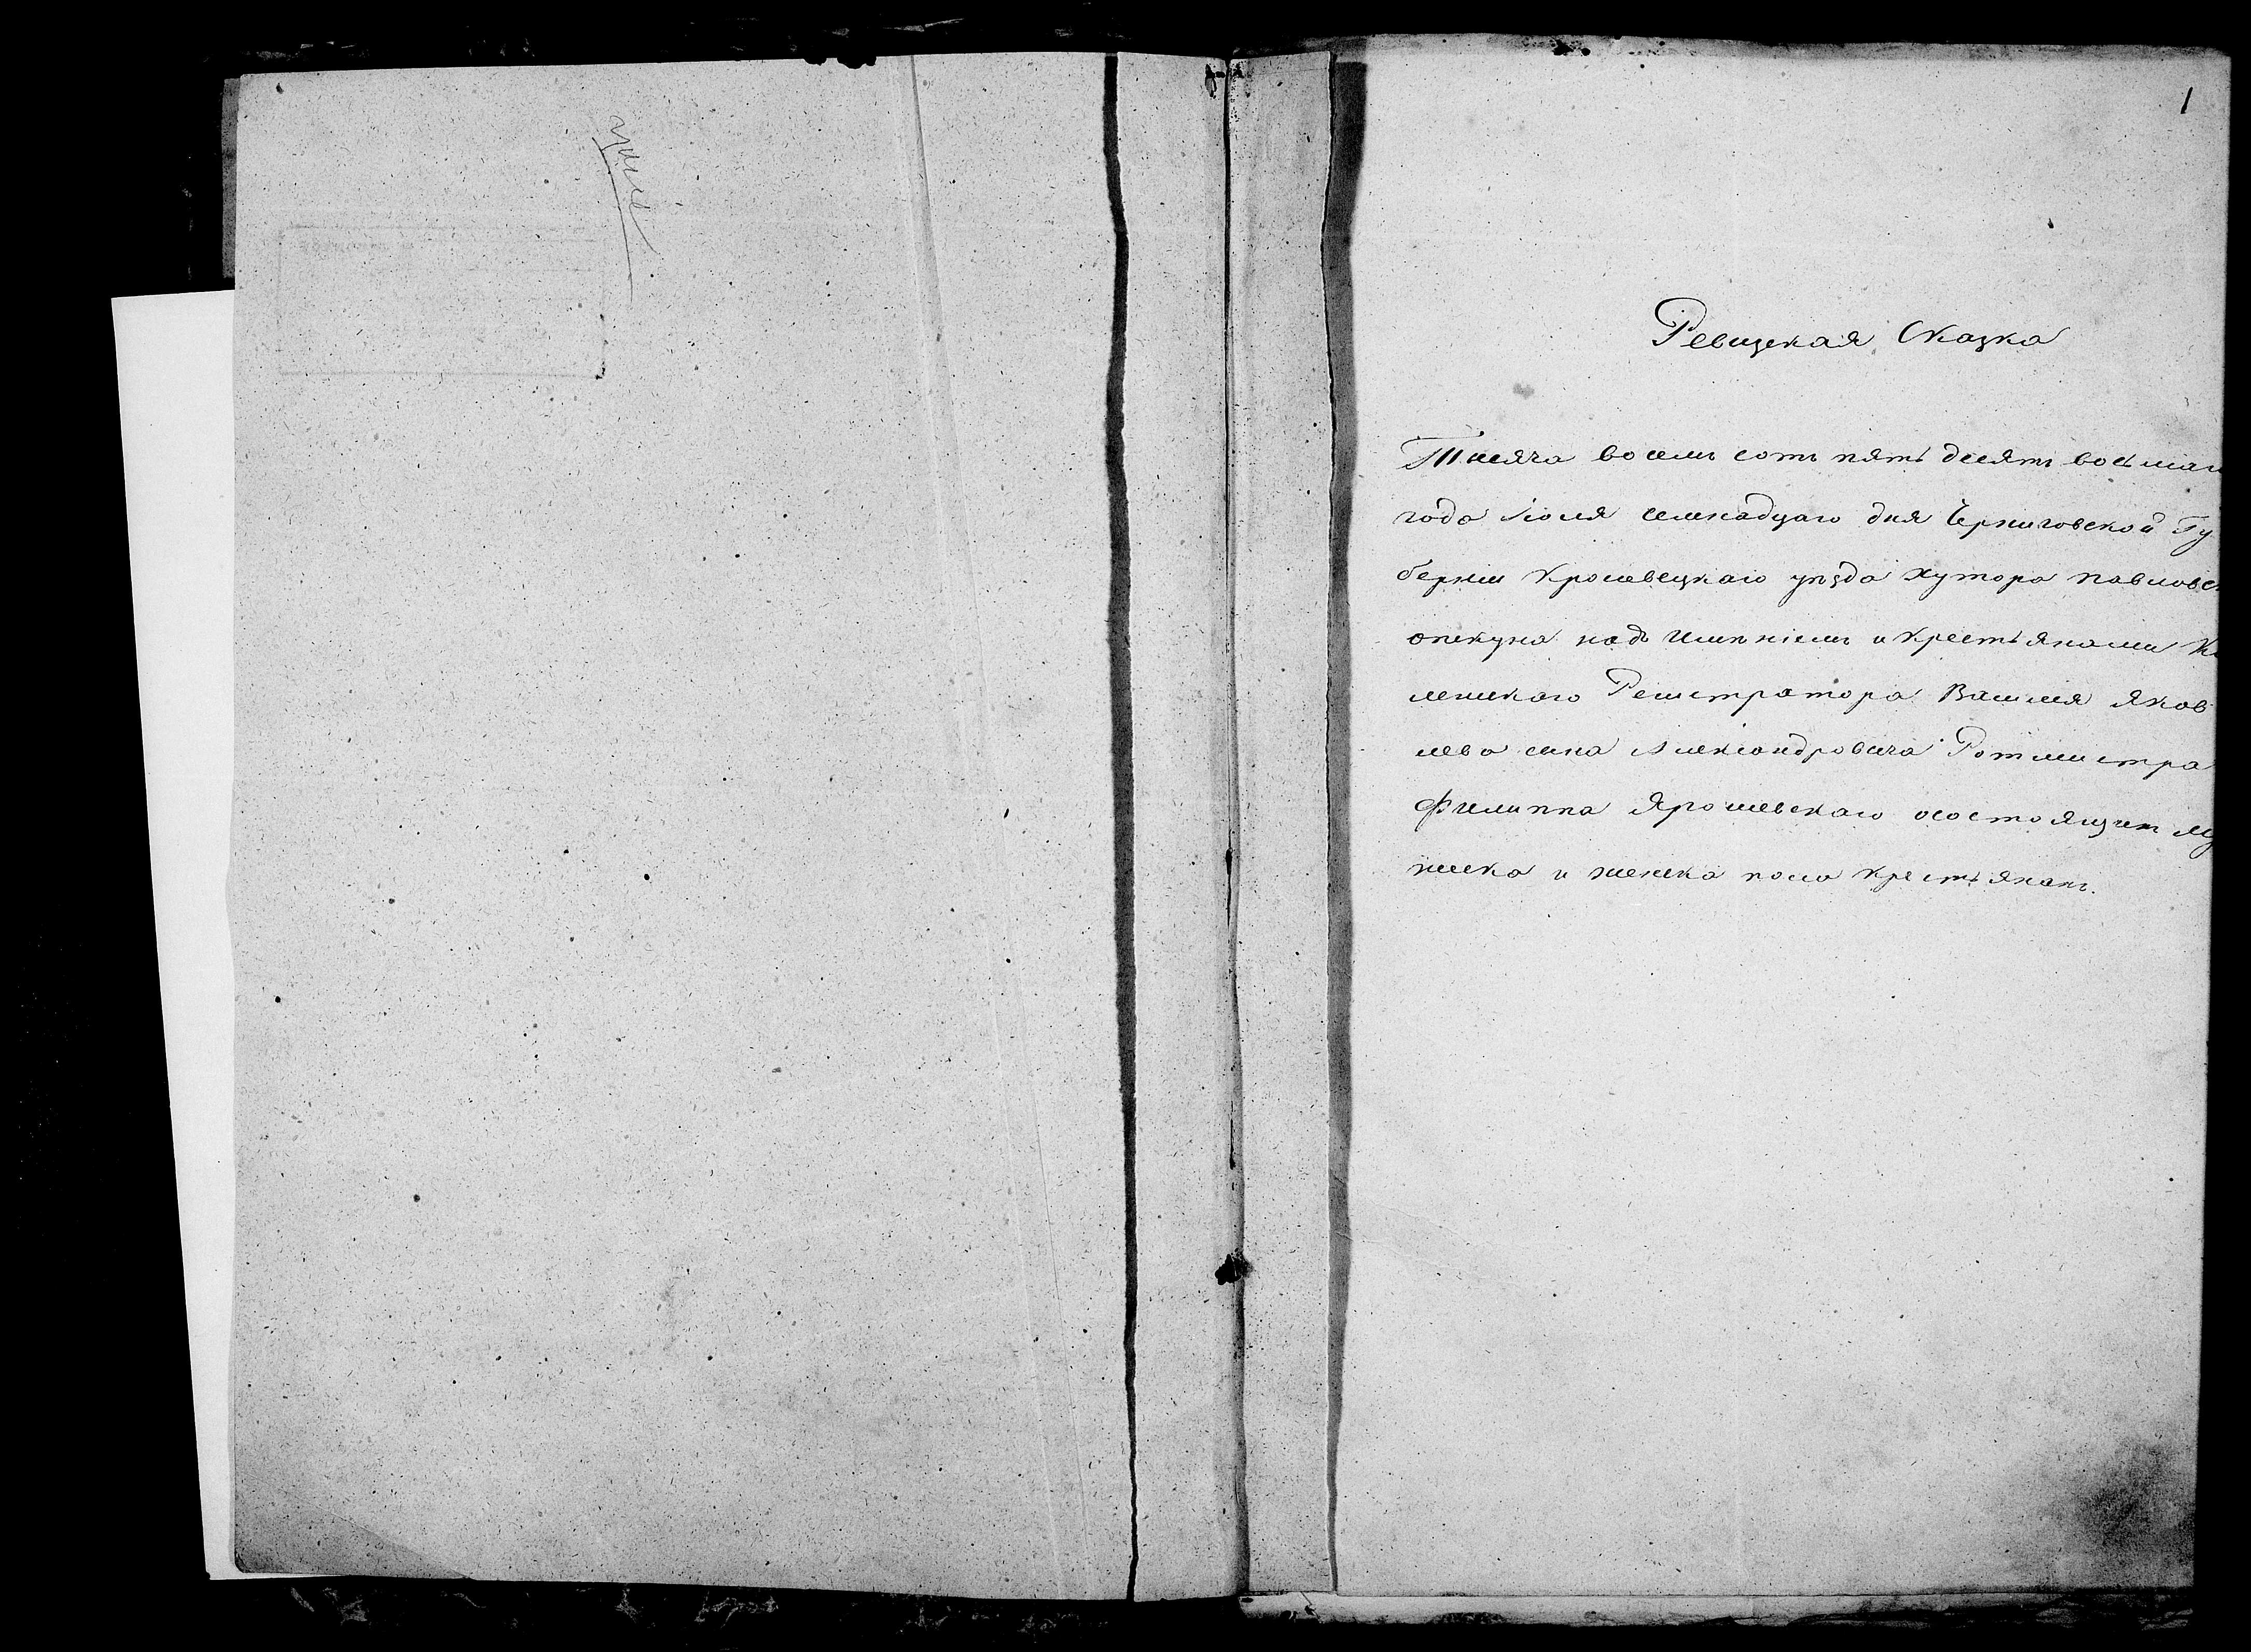 1
Ревизская Сказка
Тысяча восемь сотъ пять десять восьмаг
года Іюля семнадцаго дня Черниговской Гу
берніи Кролевецкаго уѣзда хутора Павловс
опекуна надъ имѣніемъ и крестьянами К
лежскаго Регистратора Василия Яков
лева сына Александровича Ротмистра
Филиппа Ярошевскаго осостоящихъ му
жеска и женска пола крестьянахъ.